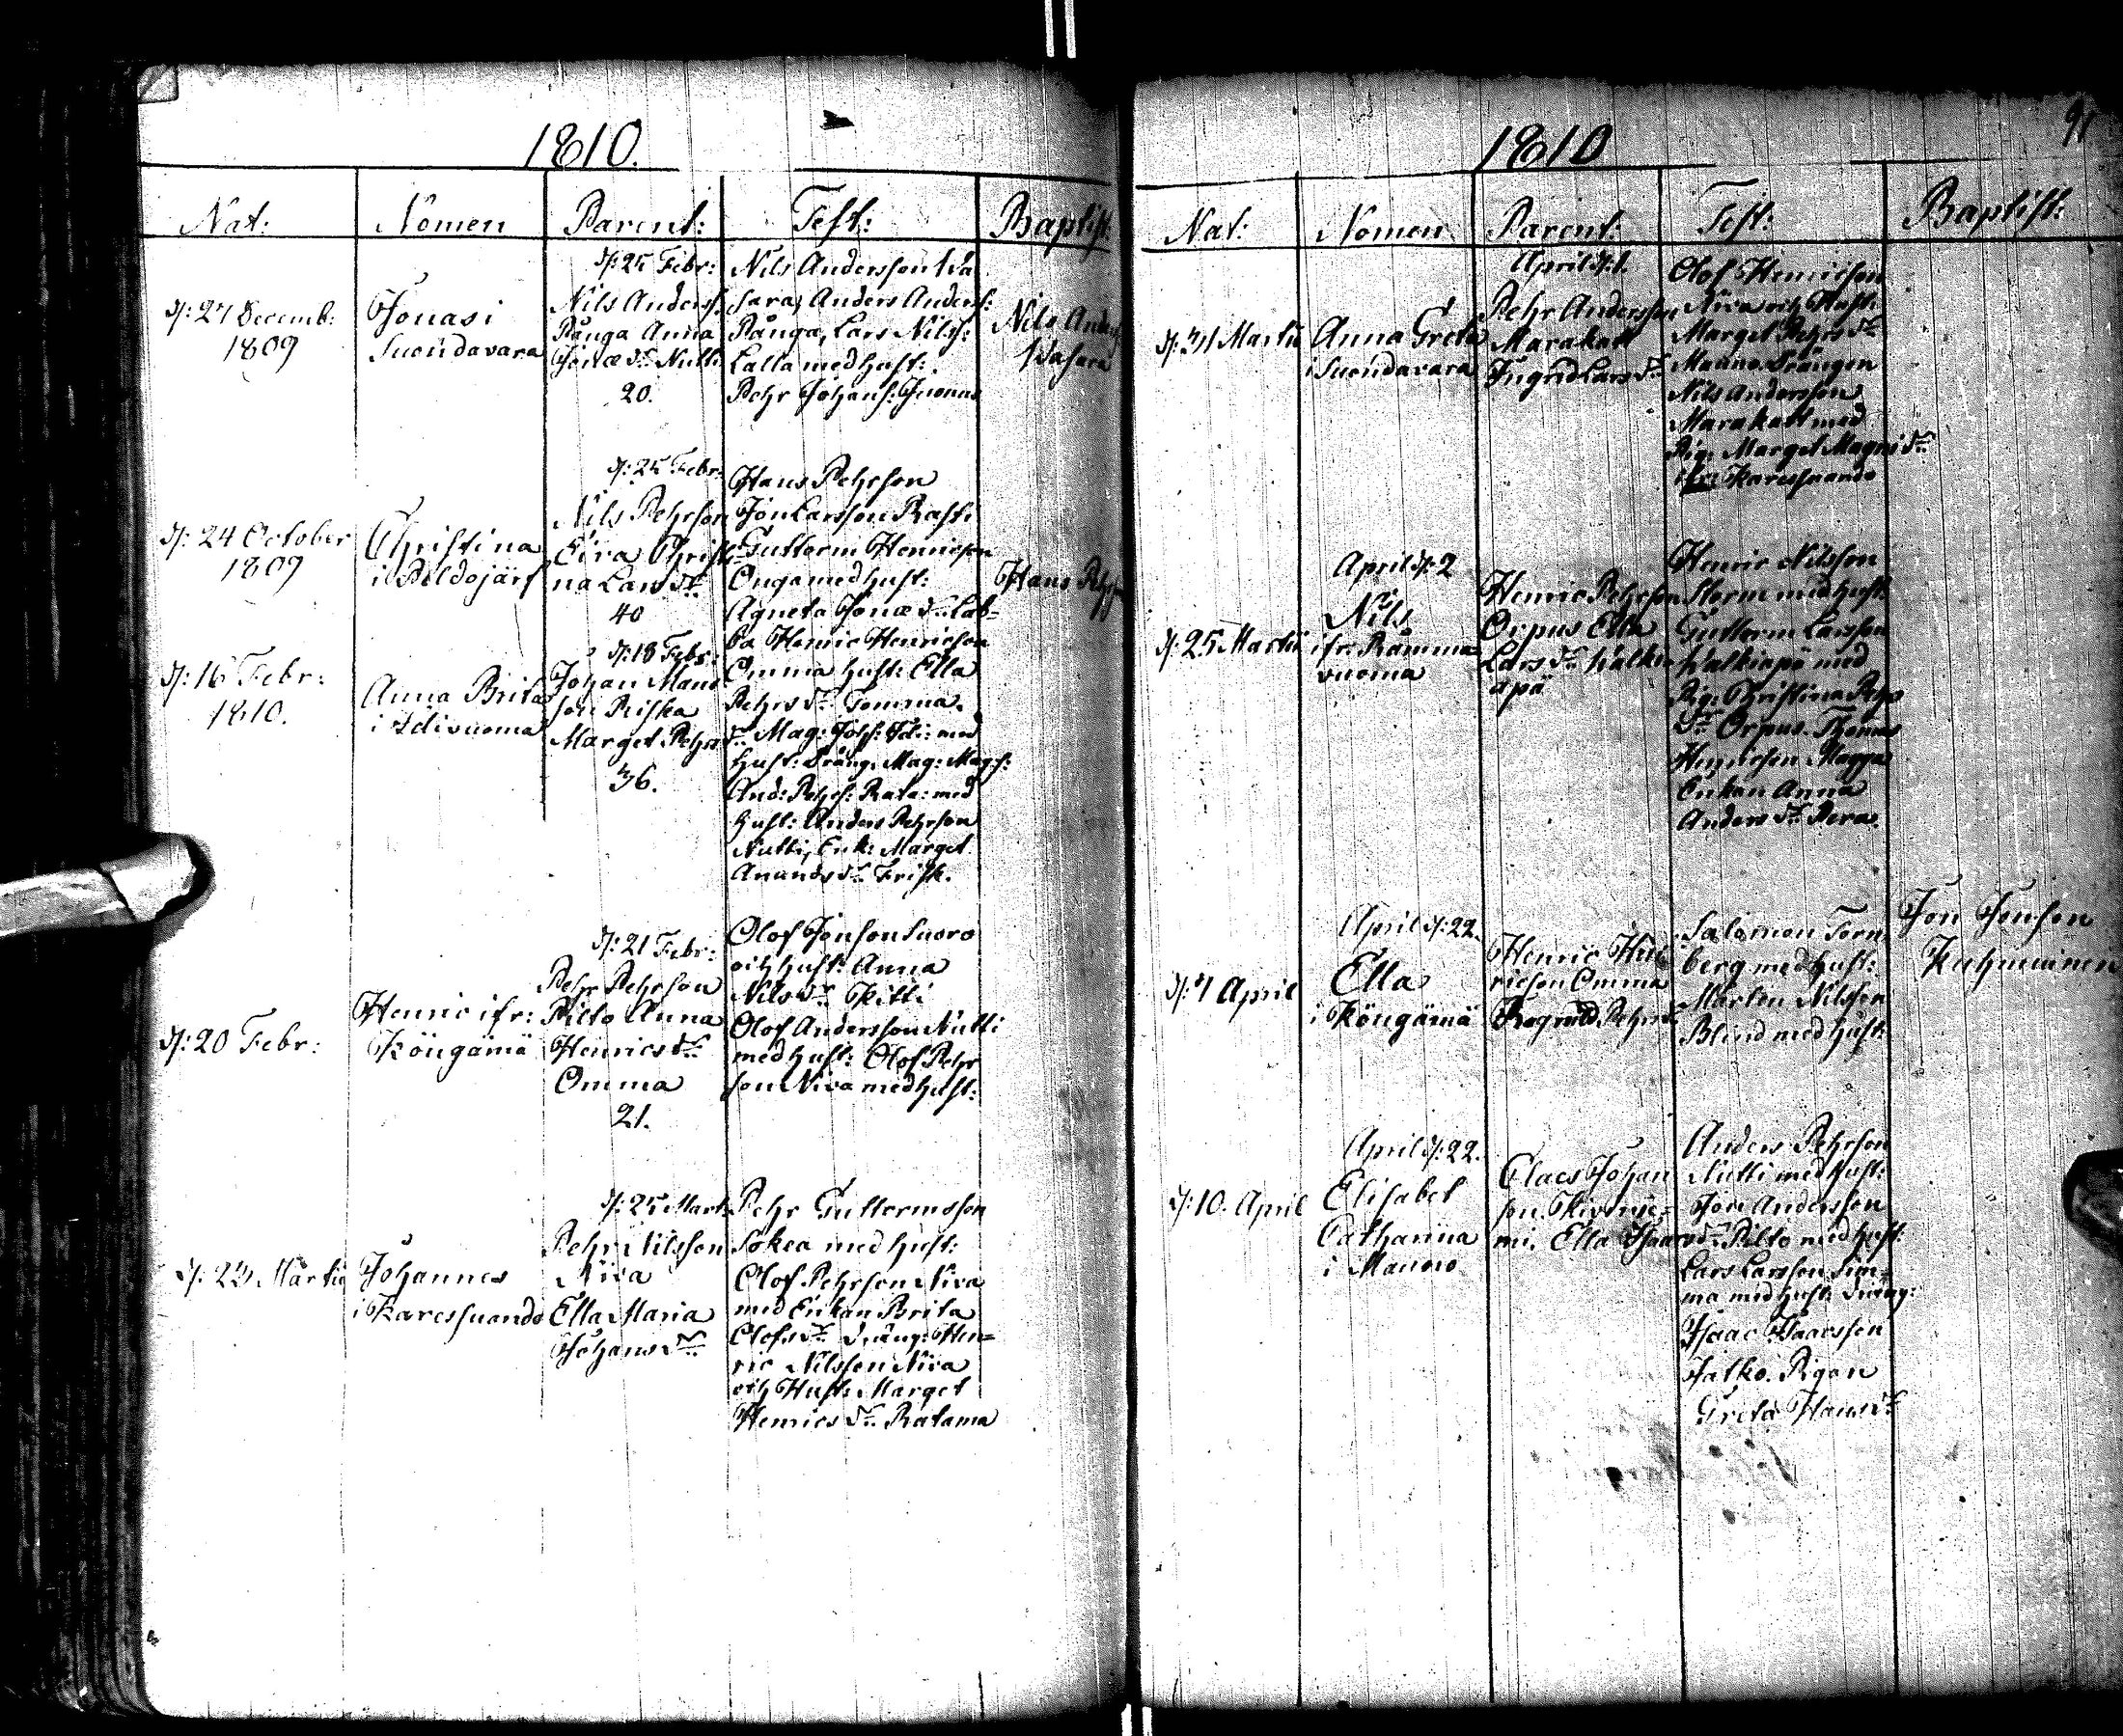 1810.
Nat: Nomen Parent: Test: Baptist:
d: 27 Decemb:
1809
Jonas i
Suondavara
d: 25 Febr:
Nils Anders:
Pånga Anna
Jonæ dr Nutti
20.
Nils Andersson Wa
sara, Anders Anders:
Pånga, Lars Nils:
Lalla med hust:
Pehr Johans: Juonas
Nils Anders
Wasara
d: 24 October
1809
Christina
i Peldojärf
d: 25 Febr:
Nils Pehrson
Eira Christi
na Lars dr
40
Hans Pehrson
Jon Larsson Rasti
Guttorm Henricson
Onga med hust:
Agneta Jonæ dr Lab-
ba Henric Henricson
Hans
d: 16 Febr:
1810.
Anna Brita
i Idivuoma
d: 18 Febr:
Johan Mans
son Riska
Marget Pehrs dr
36.
Omma hust: Ella
Pehrs dr Tomma.
Mag: Joh: Idi: med
hust: Dräng: Mag: Mags:
And: Pehrs: Rata: med
hust: Anders Pehrson
Nutti, Enk: Marget
Anunds dr Frisk.
d: 20 Febr:
Henric ifr:
Köngämä
d: 21 Febr:
Pehr Pehrson
Pilto Anna
Henrics dr
Omma
21.
Olof Jonson Suoro
och hust: Anna
Nils dr Kitti
Olof Andersson Nutti
med hust: Olof Pehr
son Niva med hust:
d: 23 Martii
Johannes
i Karessuando
d: 25 Mart:
Pehr Nilsson
Niva
Ella Maria
Johans dr
Pehr Guttormsson
Sokea med hust:
Olof Pehrson Niva
med Enkan Brita
Olofs dr Dräng: Hen=
ric Nilsson Niva
och Hust: Marget
Henrics dr Ratama
91
1810
Nat: Nomen Parent: Test: Baptist:
d: 31 Martii
Anna Greta
i Suondavara
April d: 1.
Pehr Andersson
Marakatt
Ingrid Lars dr
Olof Henricson
Niva och Hust:
Marget Pehrs dr
Mauno. Drängen
Nils Andersson
Marakatt med
Pig: Marget Magni dr
ifr: Karessuando
d: 25 Martii
April d: 2
Nils
ifr: Råmma=
vuoma
Henric Pehrson
Orpus Ella
Lars dr Walki=
apä
Henric Nilsson
Storm med hust:
Guttorm Larsson
Walkiapä med
Pig: Christina Pehrs
dr Orpus. Thomas
Henricson Magga
Enkan Anna
Anders dr Pera.
d: 7 April
April d: 22.
Ella
i Köngämä
Henric Hen
ricson Omma
Pehrs dr
Salomon Torn
berg med hust:
Marten Nilsson
Blind med hust:
Jon Jonson
d: 10. April
April d: 22.
Elisabet
Catharina
i Mauno
Claes Johan
son.
mi. Ella Isaacs dr
Anders Pehrson
Nutti med hust:
Jon Andersson
Pilto med hust:
Lars Larsson Sim=
ma med hust: Dräng:
Isaac Isaacsson
Jatko. Pigan
Greta Hans dr